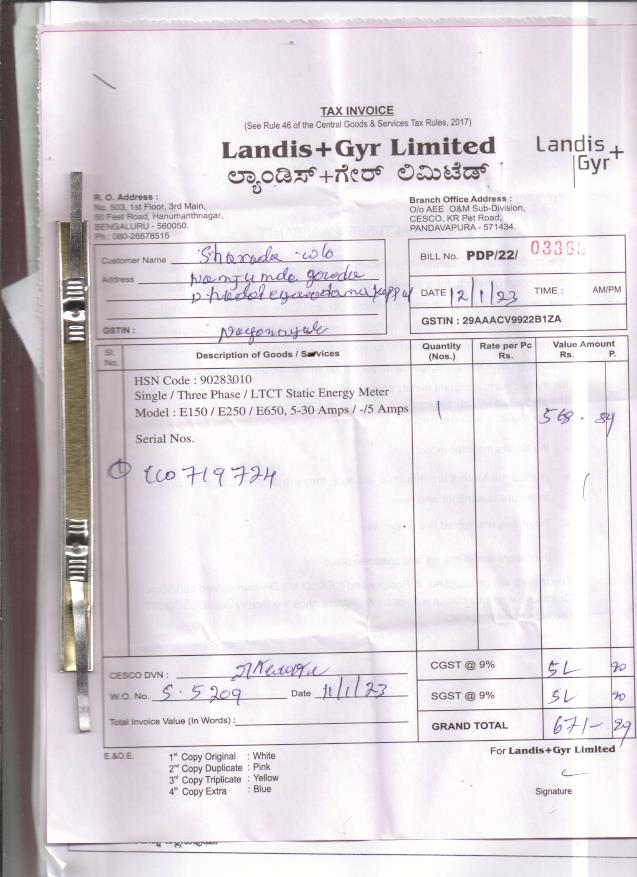 TAX INVOICE
(See Rule 46 of the Central Goods & Services Tax Rules, 2017)
Landis+Gyr Limited
ಲ್ಯಾಂಡಿಸ್+ಗೇರ್ ಲಿಮಿಟೆಡ್
Landis+
Gyr
R. O. Address :
No. 503, 1st Floor, 3rd Main,
50 Feet Road, Hanumanthnagar,
BENGALURU - 560050.
Ph.: 080-26678515
Branch Office Address :
O/o AEE O&M Sub-Division,
CESCO, KR Pet Road,
PANDAVAPURA - 571434.
Customer Name Sharada w/o
Address Nanjunda gowda
GSTIN :
BILL No. PDP/22/
DATE 12/1/23 TIME : AM/PM
GSTIN : 29AAACV9922B1ZA
Sl. No. Description of Goods / Services Quantity (Nos.) Rate per Pc Rs. Value Amount Rs. P.
HSN Code : 90283010
Single / Three Phase / LTCT Static Energy Meter
Model : E150 / E250 / E650, 5-30 Amps / -/5 Amps 1 568 - 84
Serial Nos.
1 719724
CESCO DVN :
W.O. No. S.5209 Date 11/1/23
Total Invoice Value (In Words) :
CGST @ 9% 51 20
SGST @ 9% 51 20
GRAND TOTAL 671-
E.&O.E.
1st Copy Original : White
2nd Copy Duplicate : Pink
3rd Copy Triplicate : Yellow
4th Copy Extra : Blue
For Landis+Gyr Limited
Signature